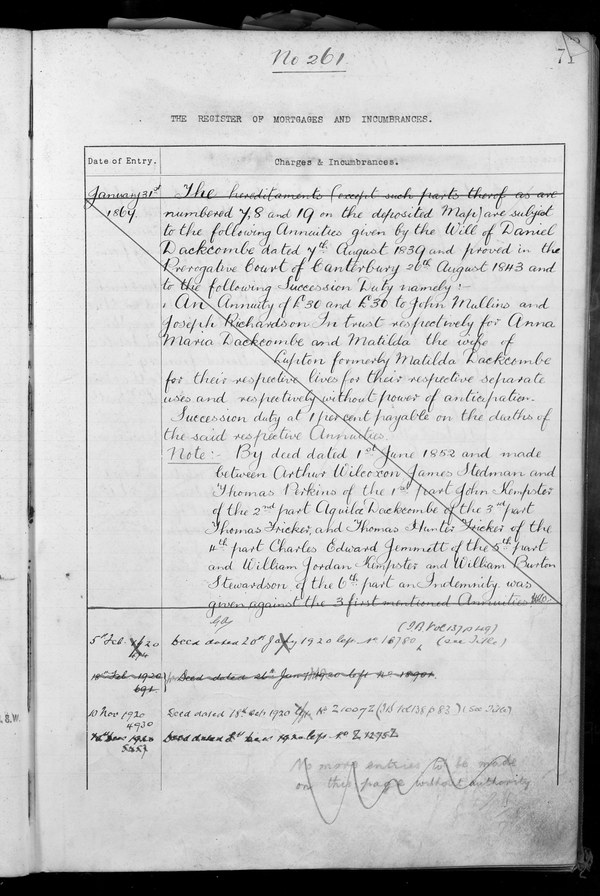 No 261
71
THE REGISTER OF MORTGAGES AND INCUMBRANCES.
Date of Entry.
Charges & Incumbrances.
January 31st
1869.
The hereditaments (except such parts thereof as are
numbered 7, 8 and 19 on the deposited Map) are subject
to the following Annuities given by the Will of Daniel
Dackcombe dated 7th August 1839 and proved in the
Prerogative Court of Canterbury 26th August 1843 and
to the following Succession Duty namely:-
An Annuity of £30 and £30 to John Mullins and
Joseph Richardson In trust respectively for Anna
Maria Dackcombe and Matilda the wife of
Lupton formerly Matilda Dackcombe
for their respective lives for their respective separate
uses and respectively without power of anticipation.
Succession duty at 1 per cent payable on the deaths of
the said respective Annuities.
Note:- By deed dated 1st June 1852 and made
between Arthur Wilcoxon James Stedman and
Thomas Perkins of the 1st part John Kempster
of the 2nd part Aquila Dackcombe of the 3rd part
Thomas Fricker, and Thomas Hunter Fricker of the
4th part Charles Edward Jemmett of the 5th part
and William Jordan Kempster and William Burton
Stewardson of the 6th part an Indemnity was
given against the 3 first mentioned Annuities
5th Feb. 1920
Deed dated 20th Jany 1920 leps No 18780 (see Titles)
10th Feb 1920
691
Deed dated 26th Jan 1920 leps No
10 Nov 1920
4930
Deed dated 18th Oct 1920 No Z 10072 (I.B Vol 138 p 83) (see Titles)
1920
Deed dated 1920 leps No Z 12752
S. W.
No more entries to be made
on this page without authority